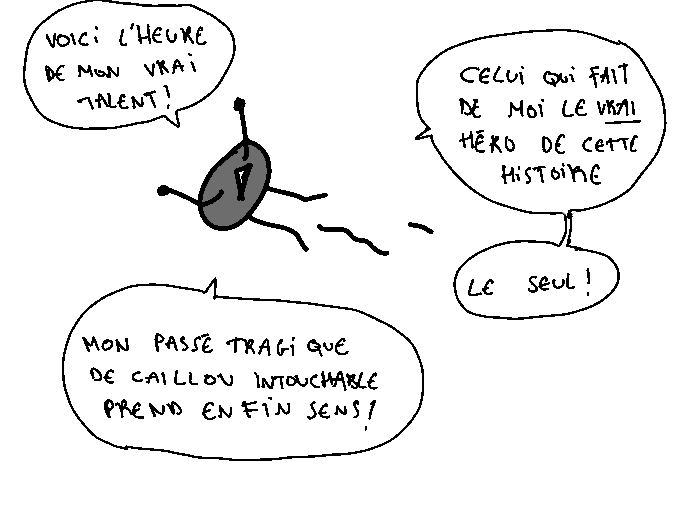 VOICI L'HEURE
DE MON VRAI
TALENT!
CELUI QUI FAIT
DE MOI LE VRAI
HÉRO DE CETTE
HISTOIRE
LE SEUL!
MON PASSÉ TRAGIQUE
DE CAILLOU INTOUCHABLE
PREND ENFIN SENS!